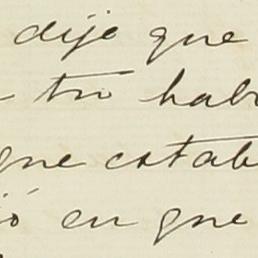 dije que
tu hab
que estab
ó en que